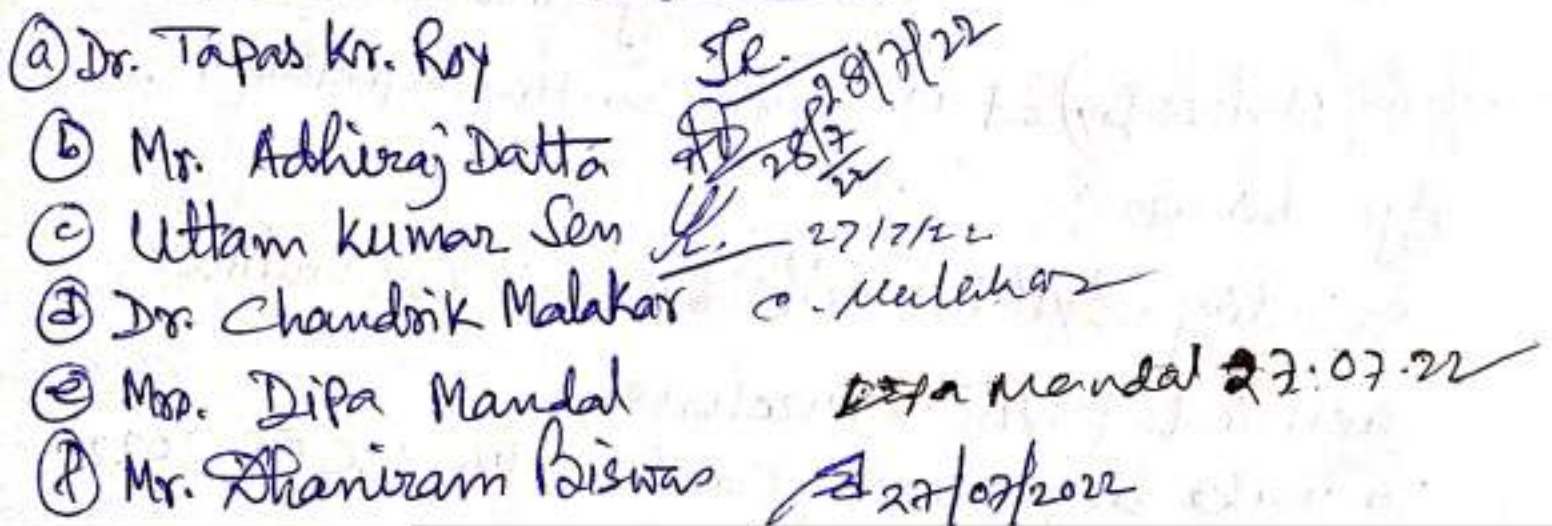 (a) Dr. Tapas Kr. Roy 28/7/22
(b) Mr. Adhiraj Datta AD 28/7/22
(c) Uttam Kumar Sen 27/7/22
(d) Dr. Chandrik Malakar C. Malakar
(e) Mrs. Dipa Mandal Dipa Mandal 27.07.22
(f) Mr. Dhaniram Biswas 27/07/2022